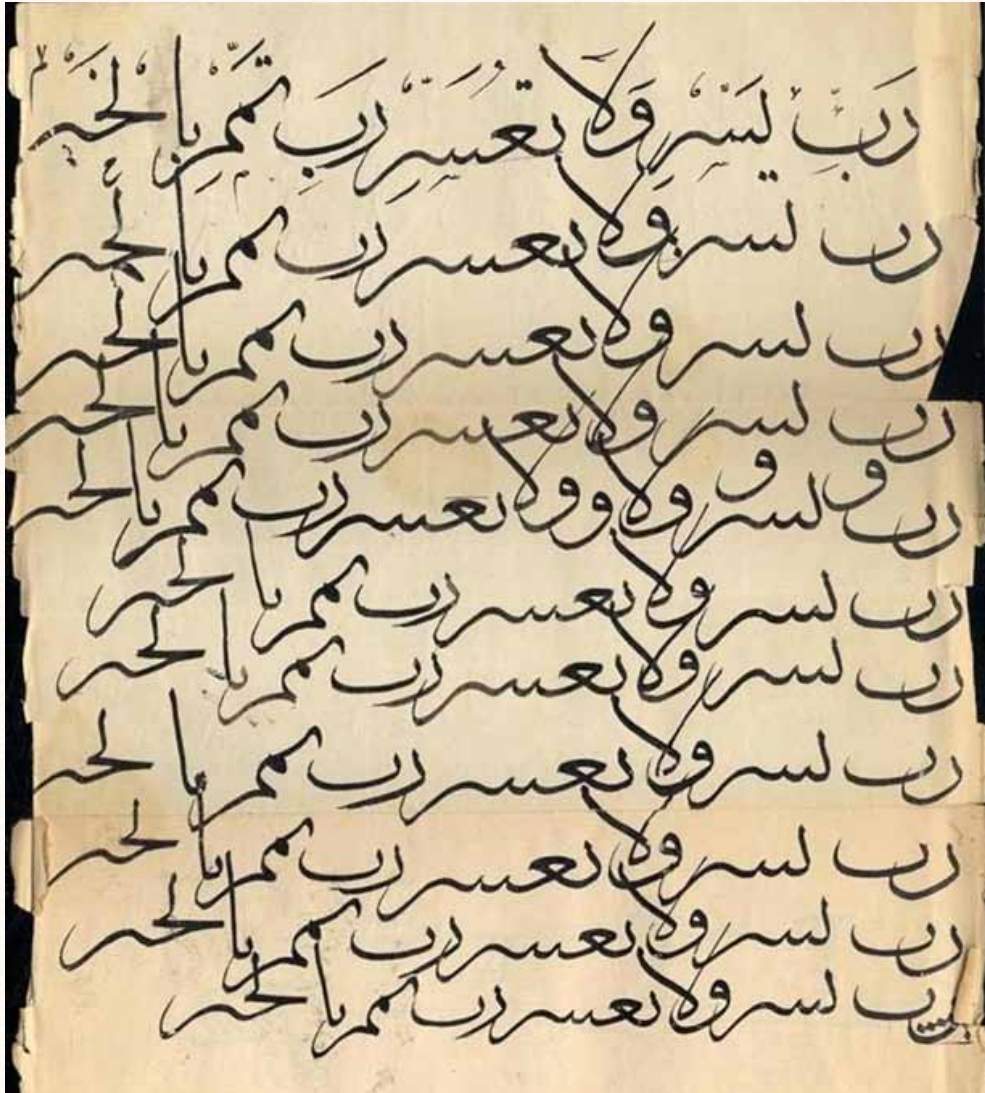 رَبِّ يَسِّرْ وَلَا تُعَسِّرْ رَبِّ تَمِّمْ بِالْخَيْرِ
رب يسر ولا تعسر رب تمم بالخير
رب يسر ولا تعسر رب تمم بالخير
رب يسر ولا تعسر رب تمم بالخير
و و
رب يسر ولا وولا تعسر رب تمم بالخير
رب يسر ولا تعسر رب تمم بالخير
رب يسر ولا تعسر رب تمم بالخير
رب يسر ولا تعسر رب تمم بالخير
رب يسر ولا تعسر رب تمم بالخير
رب يسر ولا تعسر رب تمم بالخير
رب يسر ولا تعسر رب تمم بالخير